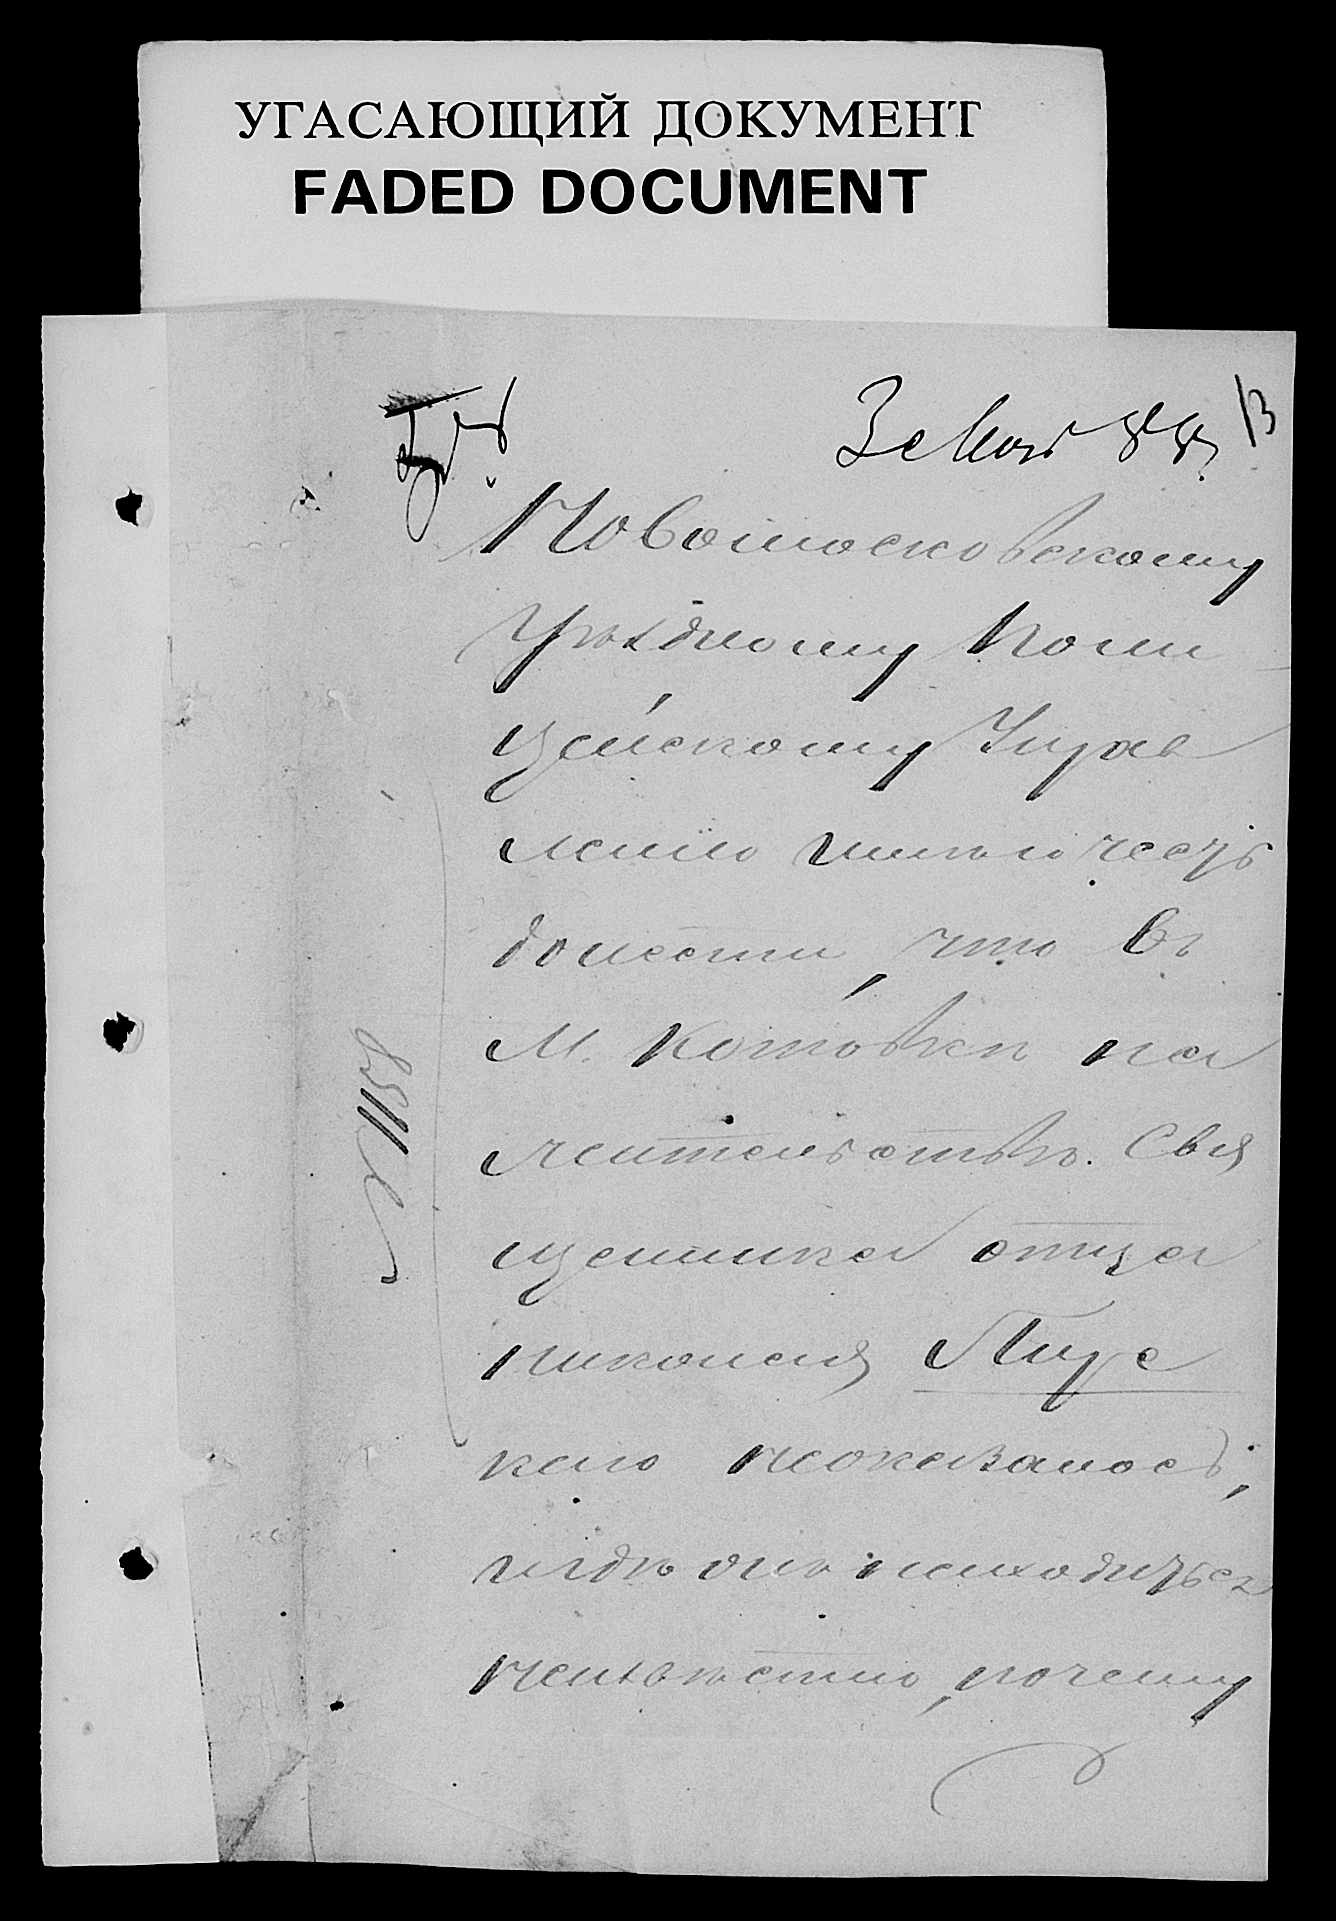 УГАСАЮЩИЙ ДОКУМЕНТ
FADED DOCUMENT
13
Новомосковскому
Уѣздному Поли
цейскому Управ
ленію имѣю честь
донести, что въ
М. Котовкѣ на
жительствѣ Свя
щенника отца
Николая
него неоказалось,
и гдѣ онъ находиться
неизвѣстно, почему